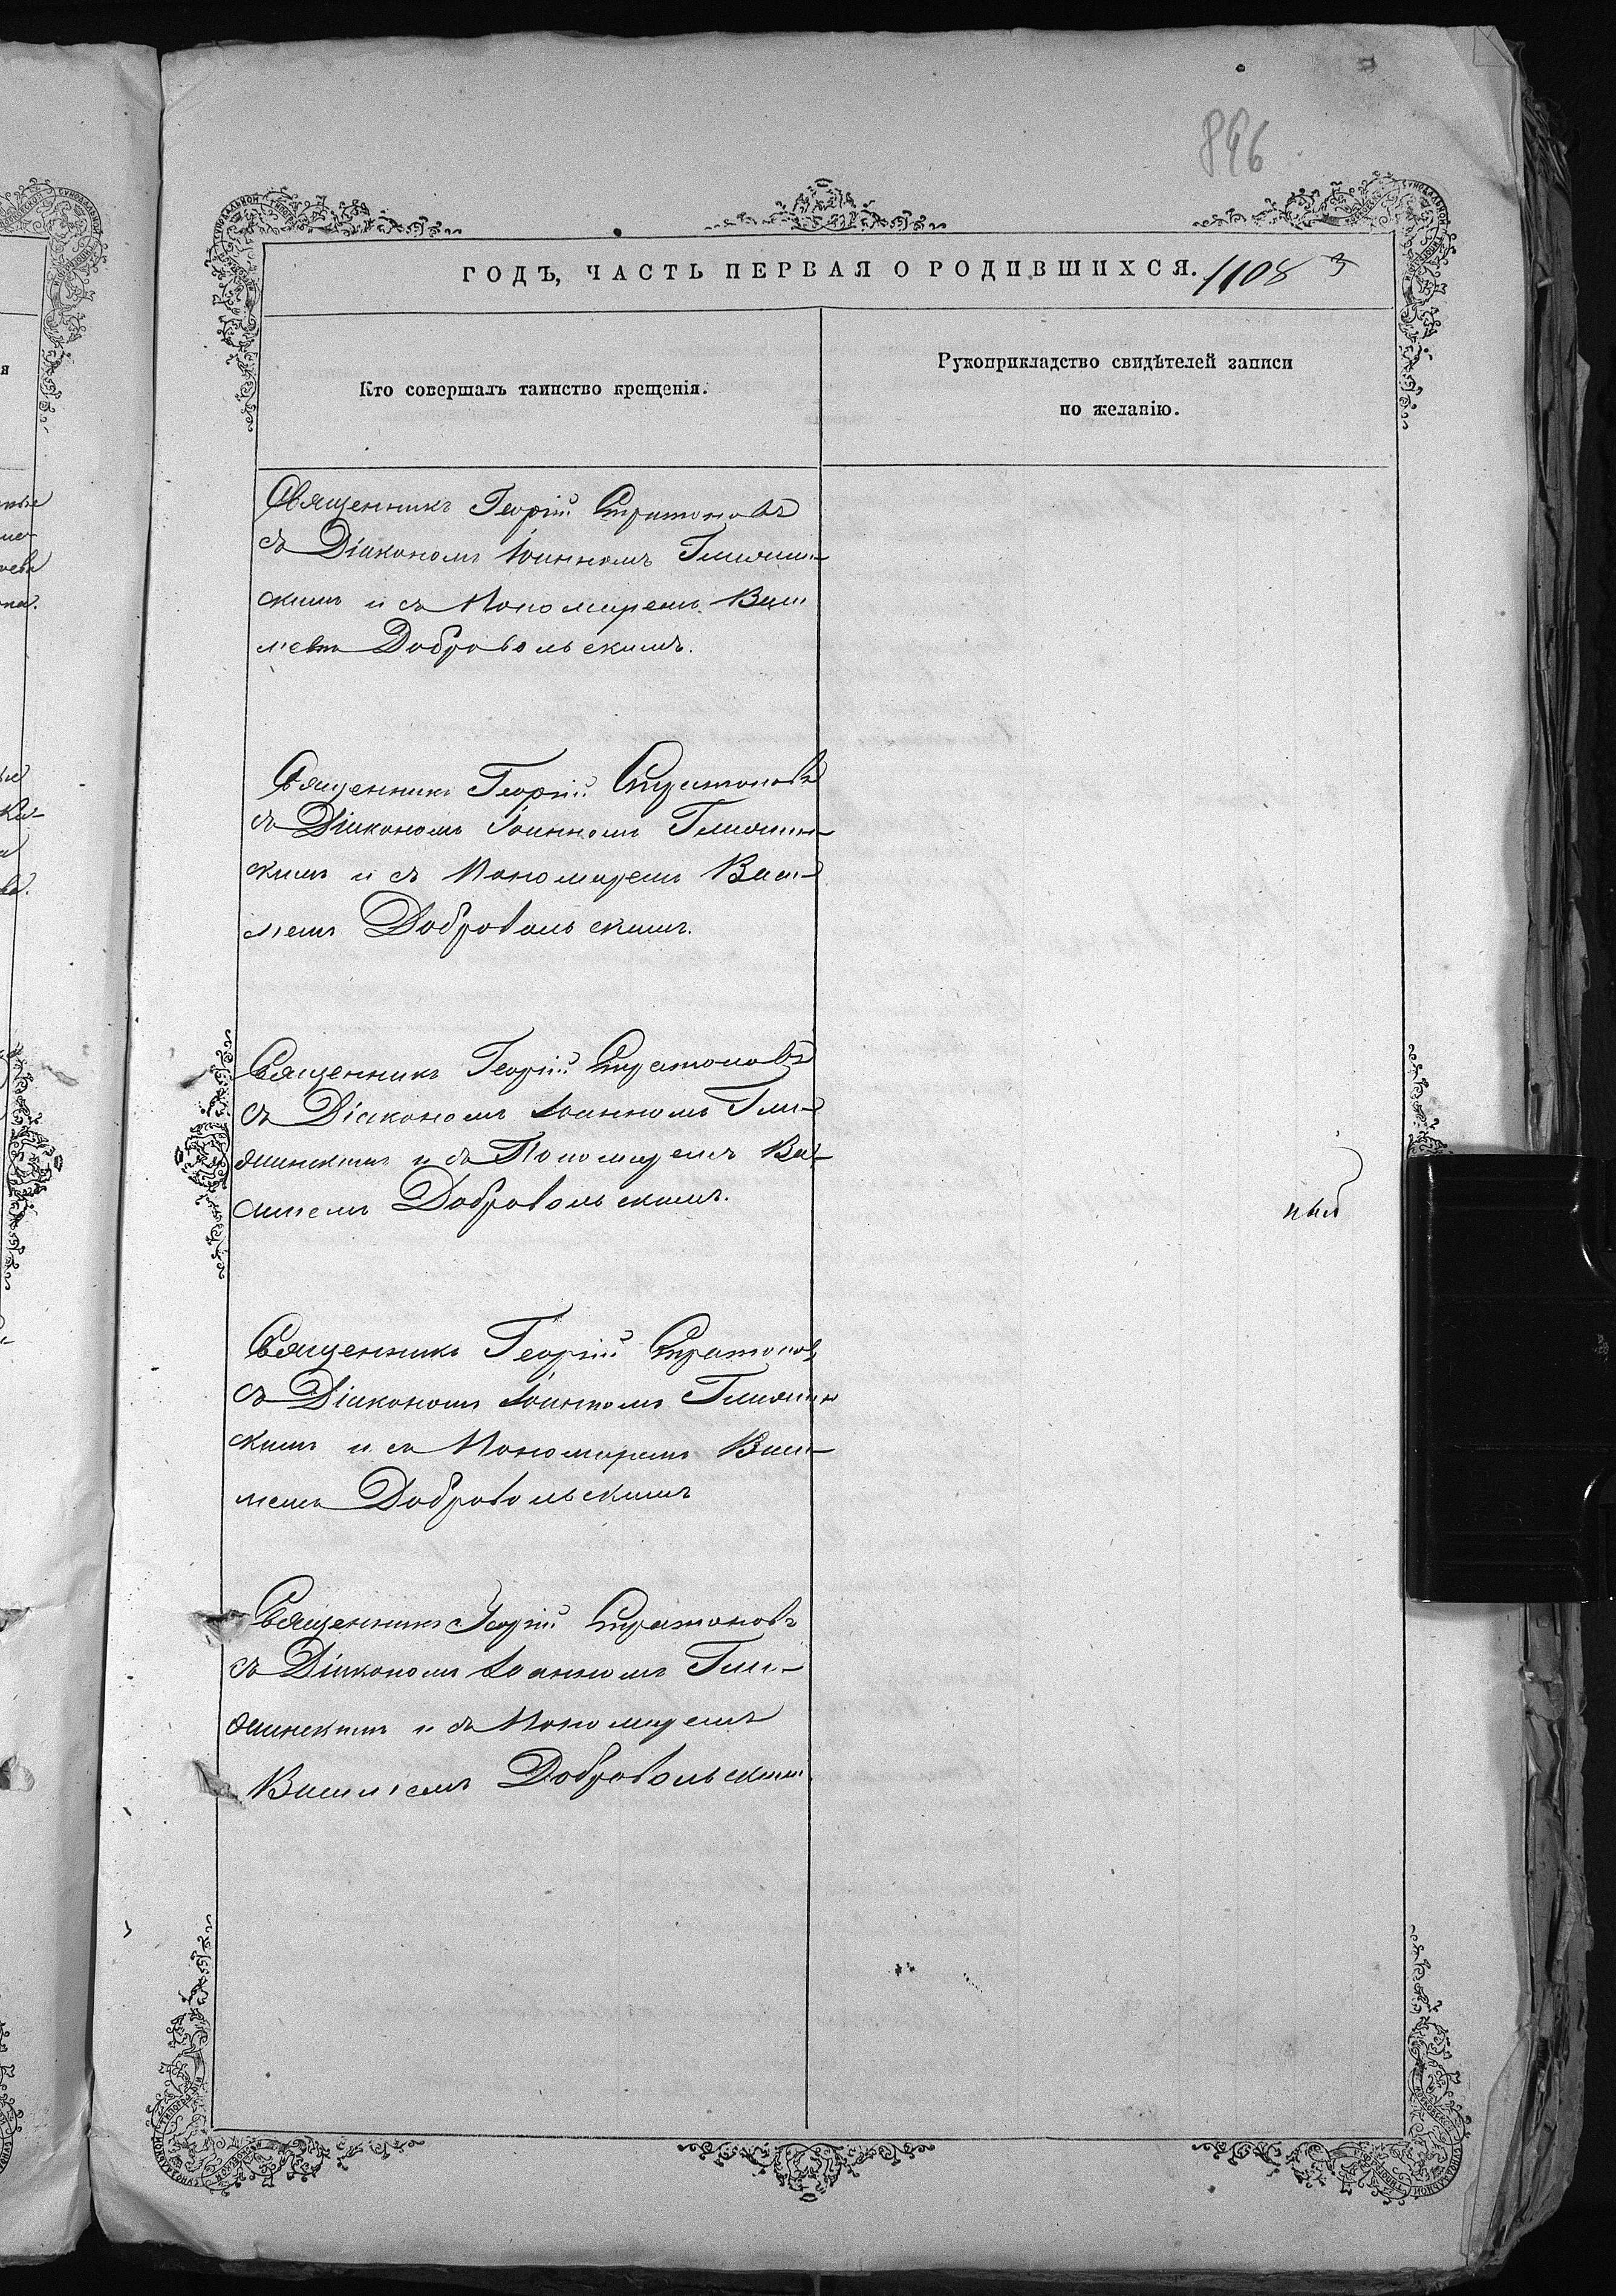 896
ГОДЪ, ЧАСТЬ ПЕРВАЯ О РОДИВШИХСЯ. 1108 3
Кто совершалъ таинство крещенія.
Рукоприкладство свидѣтелей записи
по желанію.
Священникъ Георгій Стратоновъ
съ Діакономъ Іоанномъ
скимъ и съ Пономаремъ Васи
ліемъ Добровольскимъ.
Священникъ Георгій Стратоновъ
съ Діакономъ Іоанномъ
скимъ и съ Пономаремъ Васи-
ліемъ Добровольскимъ.
Священникъ Георгій Стратоновъ
съ Діакономъ Іоанномъ
и съ Пономаремъ Ва-
силіемъ Добровольскимъ.
Священникъ Георгій Стратоновъ
съ Діакономъ Іоанномъ
скимъ и съ Пономаремъ Васи-
ліемъ Добровольскимъ
Священникъ Георгій Стратоновъ
съ Діакономъ Іоанномъ
и съ Пономаремъ
Василіемъ Добровольскимъ